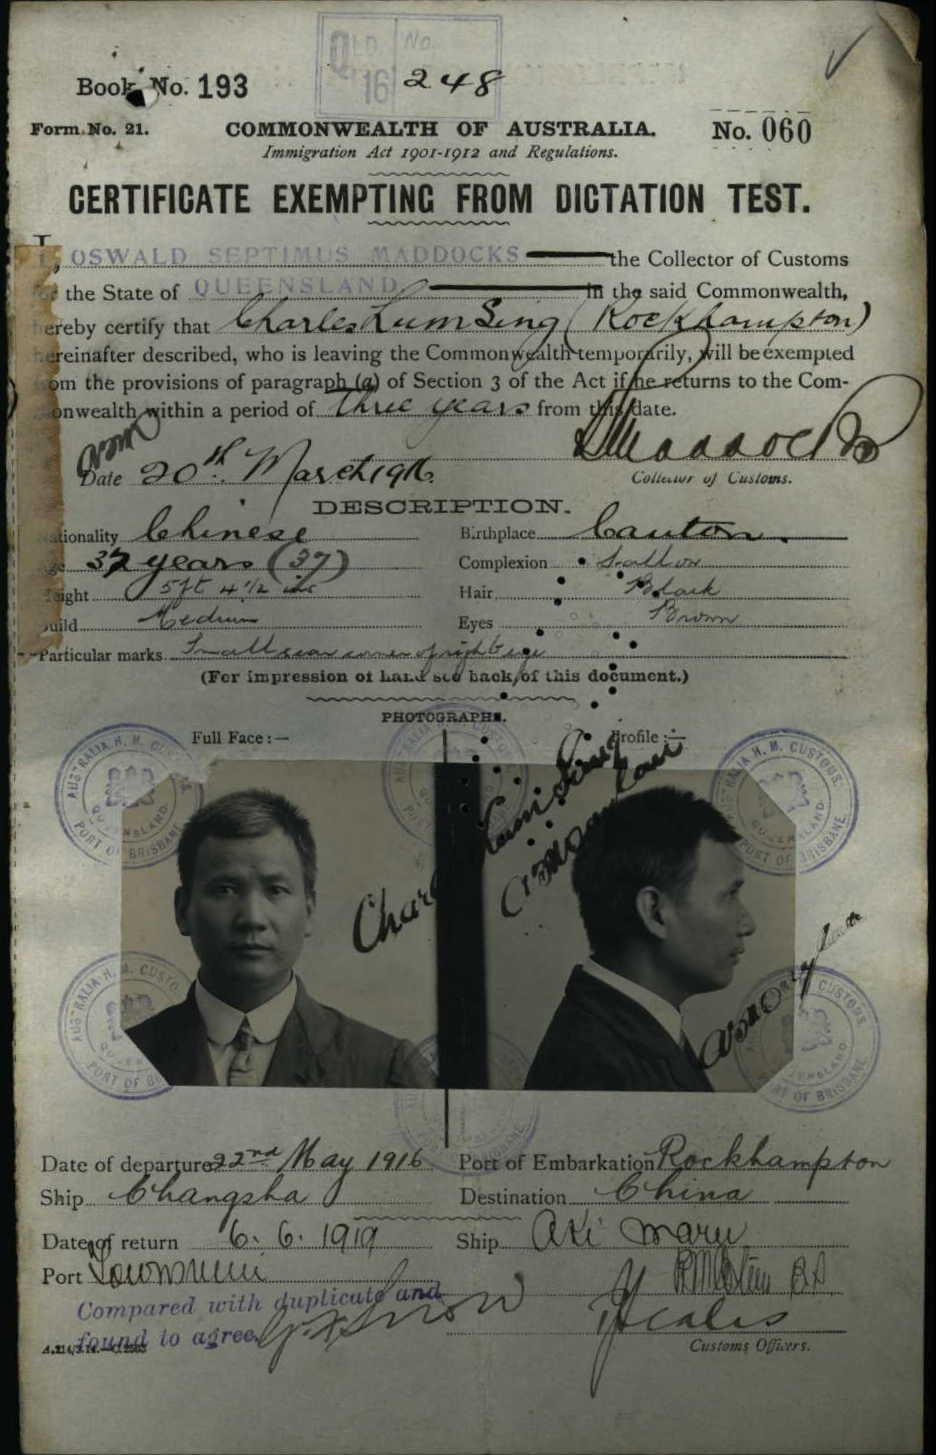 QLD. No.
16
Book No. 193
248
Form No. 21.
COMMONWEALTH OF AUSTRALIA.
No. 060
Immigration Act 1901-1912 and Regulations.
CERTIFICATE EXEMPTING FROM DICTATION TEST.
I, OSWALD SEPTIMUS MADDOCKS the Collector of Customs
for the State of QUEENSLAND. in the said Commonwealth,
hereby certify that Charles Lum Sing (Rockhampton)
hereinafter described, who is leaving the Commonwealth temporarily, will be exempted
from the provisions of paragraph (a) of Section 3 of the Act if he returns to the Com-
monwealth within a period of three years from this date.
Maddocks
Date 20th March 1916.
Collector of Customs.
DESCRIPTION.
Nationality Chinese
Birthplace Canton.
Age 37 years (37)
Complexion Sallow
Height 5ft 4 1/2 ins
Hair Black
Build Medium
Eyes Brown
Particular marks Small scar corner of right eye
(For impression of hand see back of this document.)
PHOTOGRAPHS.
Full Face:—
Profile:—
AUSTRALIA H. M. CUSTOMS
QUEENSLAND
PORT OF BRISBANE
AUSTRALIA H. M. CUSTOMS
QUEENSLAND
PORT OF BRISBANE
Charles Lum Sing
AUSTRALIA H. M. CUSTOMS
QUEENSLAND
PORT OF BRISBANE
AUSTRALIA H. M. CUSTOMS
QUEENSLAND
PORT OF BRISBANE
Date of departure 22nd May 1916
Port of Embarkation Rockhampton
Ship Changsha
Destination China
Date of return 6. 6. 1919
Ship Aki Maru
Port Townsville
Compared with duplicate and
found to agree
Customs Officers.